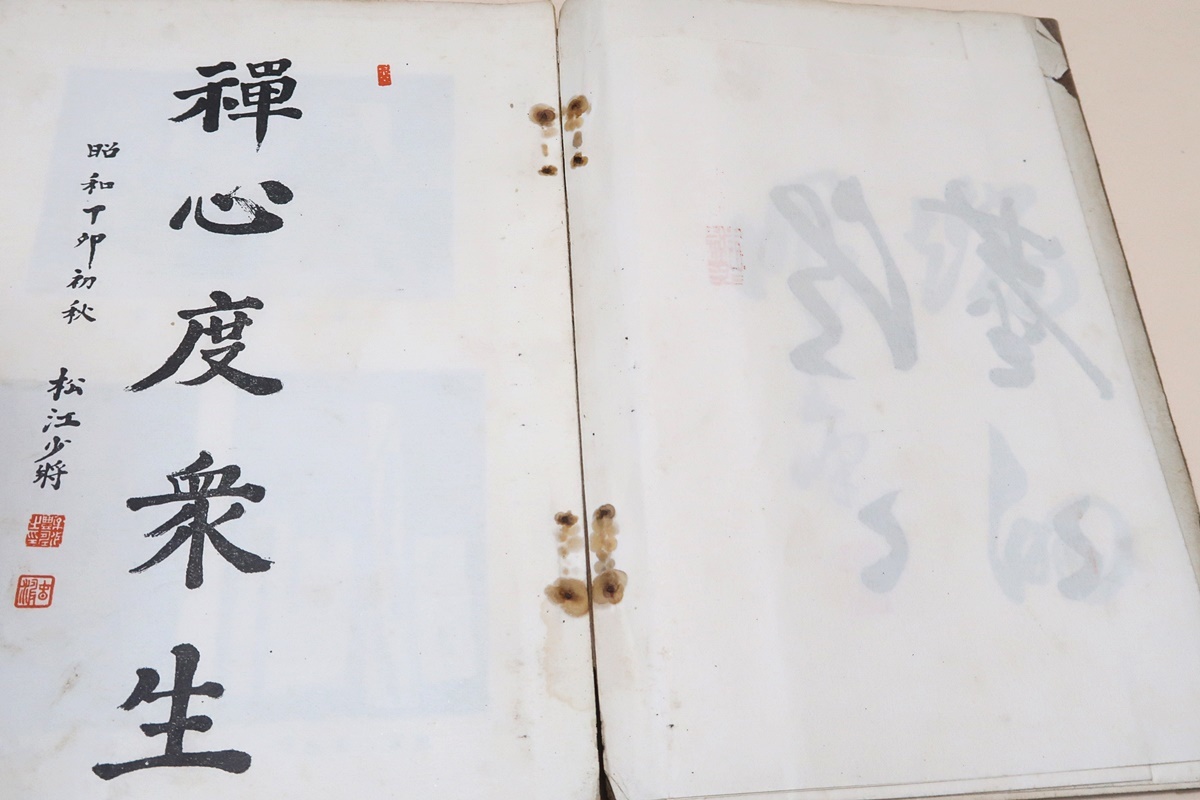 禪心度衆生
昭和丁卯初秋
松江少將